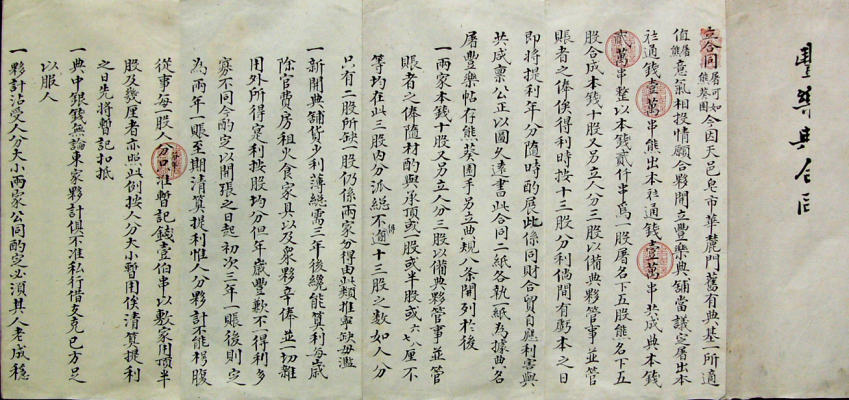 豐樂典合同
立合同屠可如熊葵園今因天邑皂市華麓門舊有典基一所適
值屠熊意氣相投情願合夥開立豐樂典舖當議定屠出本
社通錢壹萬串熊出本社通錢壹萬串共成典本錢
貳萬串整以本錢貳仟串為一股屠名下五股熊名下五
股合成本錢十股又另立人分三股以備典夥管事並管
賬者之俸俟得利時按十三股分利倘間有虧本之日
即將提利年分隨時酌展此係同財合貿自應利害與
共咸禀公正以圖久遠書此合同二紙各執一紙為據典名
屠豐樂帖存熊葵園手另立典規八条開列於後
一兩家本錢十股又另立人分三股以備典夥管事並管
賬者之俸隨材酌與承頂或一股或半股或六七八厘不
等均在此三股內分派總不過得十三股之數如人分
只有二股所缺一股仍係兩家分得由此類推寧缺毋濫
一新開典舖貨少利薄總需三年後纔能算利每歲
除官費房租火食家具以及衆夥辛俸並一切雜
用外所得寔利按股均分但年歲豐歉不一得利多
寡不同今酌定以開張之日起初次三年一賬後則定
為兩年一賬至期清算提利惟人分夥計不能枵腹
從事每一股人分只准暫記錢壹伯串以敷家用頂半
股及幾厘者亦照此例按人分大小暫用俟清算提利
之日先將暫記扣抵
一典中銀錢無論東家夥計俱不准私行借支克己方足
以服人
一夥計沾受人分大小兩家公同酌定必須其人老成穩